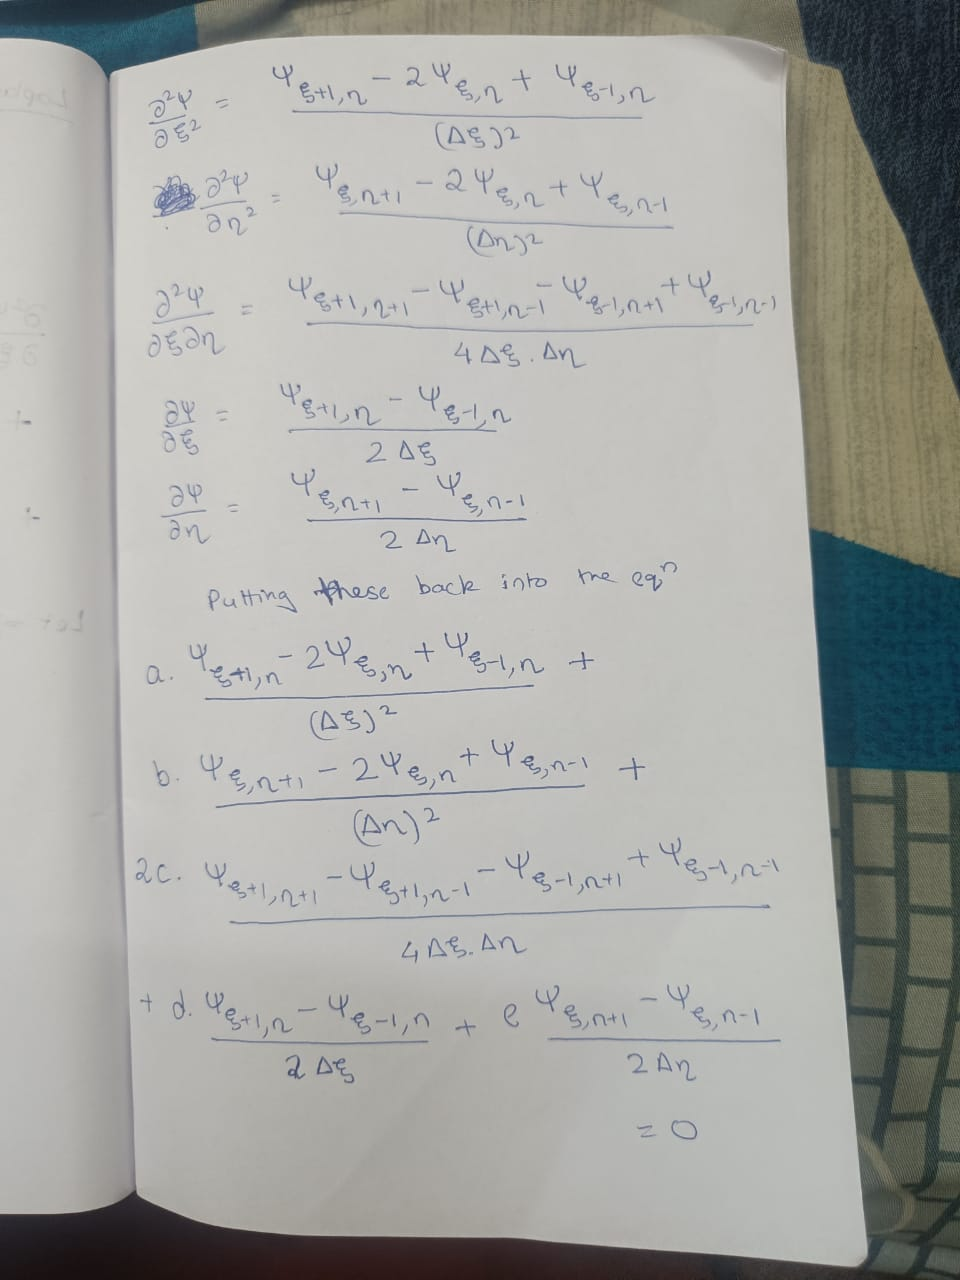 ∂²ψ/∂ξ² = (ψ_{ξ+1,η} − 2ψ_{ξ,η} + ψ_{ξ−1,η})/(Δξ)²
∂²ψ/∂η² = (ψ_{ξ,η+1} − 2ψ_{ξ,η} + ψ_{ξ,η−1})/(Δη)²
∂²ψ/∂ξ∂η = (ψ_{ξ+1,η+1} − ψ_{ξ+1,η−1} − ψ_{ξ−1,η+1} + ψ_{ξ−1,η−1})/(4Δξ.Δη)
∂ψ/∂ξ = (ψ_{ξ+1,η} − ψ_{ξ−1,η})/(2Δξ)
∂ψ/∂η = (ψ_{ξ,η+1} − ψ_{ξ,η−1})/(2Δη)
Putting these back into the eqⁿ
a. (ψ_{ξ+1,η} − 2ψ_{ξ,η} + ψ_{ξ−1,η})/(Δξ)² +
b. (ψ_{ξ,η+1} − 2ψ_{ξ,η} + ψ_{ξ,η−1})/(Δη)² +
2c. (ψ_{ξ+1,η+1} − ψ_{ξ+1,η−1} − ψ_{ξ−1,η+1} + ψ_{ξ−1,η−1})/(4Δξ.Δη)
+ d. (ψ_{ξ+1,η} − ψ_{ξ−1,η})/(2Δξ) + e (ψ_{ξ,η+1} − ψ_{ξ,η−1})/(2Δη)
= 0